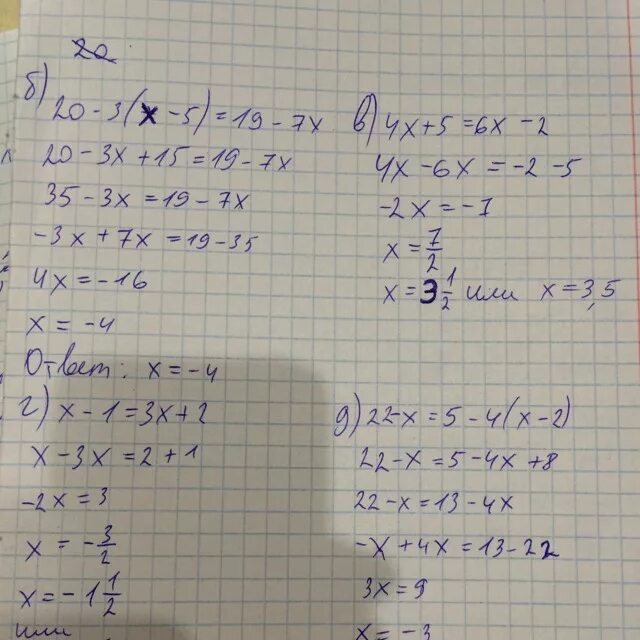 20
б)
20 - 3(x - 5) = 19 - 7x
20 - 3x + 15 = 19 - 7x
35 - 3x = 19 - 7x
-3x + 7x = 19 - 35
4x = -16
x = -4
Ответ: x = -4
в) 4x + 5 = 6x - 2
4x - 6x = -2 - 5
-2x = -7
x = 7/2
x = 3 1/2 или x = 3,5
г) x - 1 = 3x + 2
x - 3x = 2 + 1
-2x = 3
x = -3/2
x = -1 1/2
или
д) 22 - x = 5 - 4(x - 2)
22 - x = 5 - 4x + 8
22 - x = 13 - 4x
-x + 4x = 13 - 22
3x = 9
x = -3